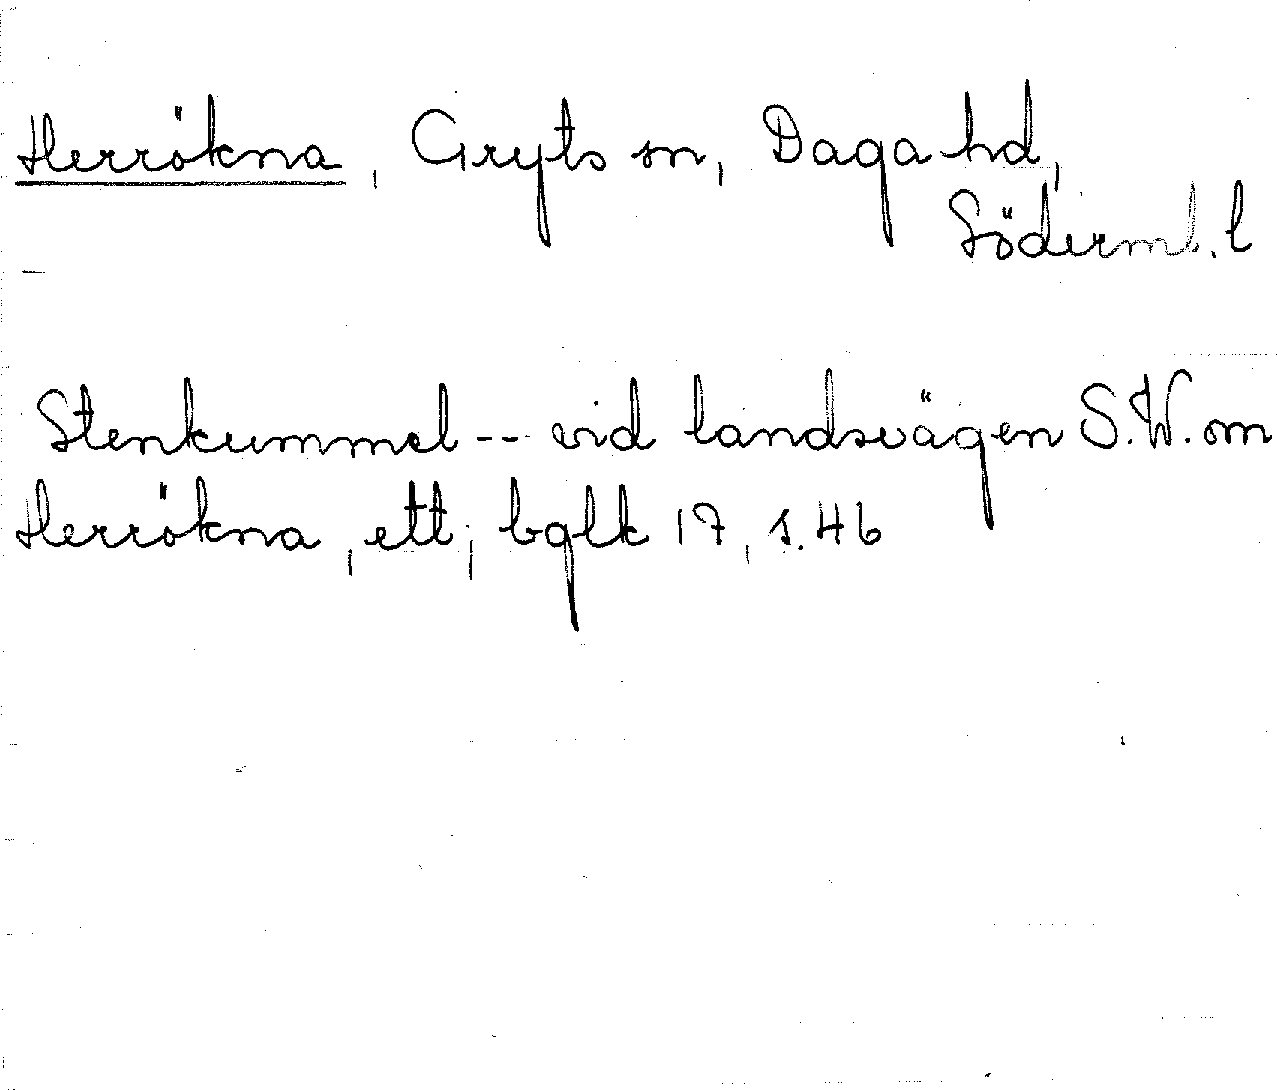 Herrökna, Gryts sn, Daga hd,
Söderml. l
Stenkummel -- vid landsvägen S.W. om
Herrökna, ett; bglk 17, s. 46